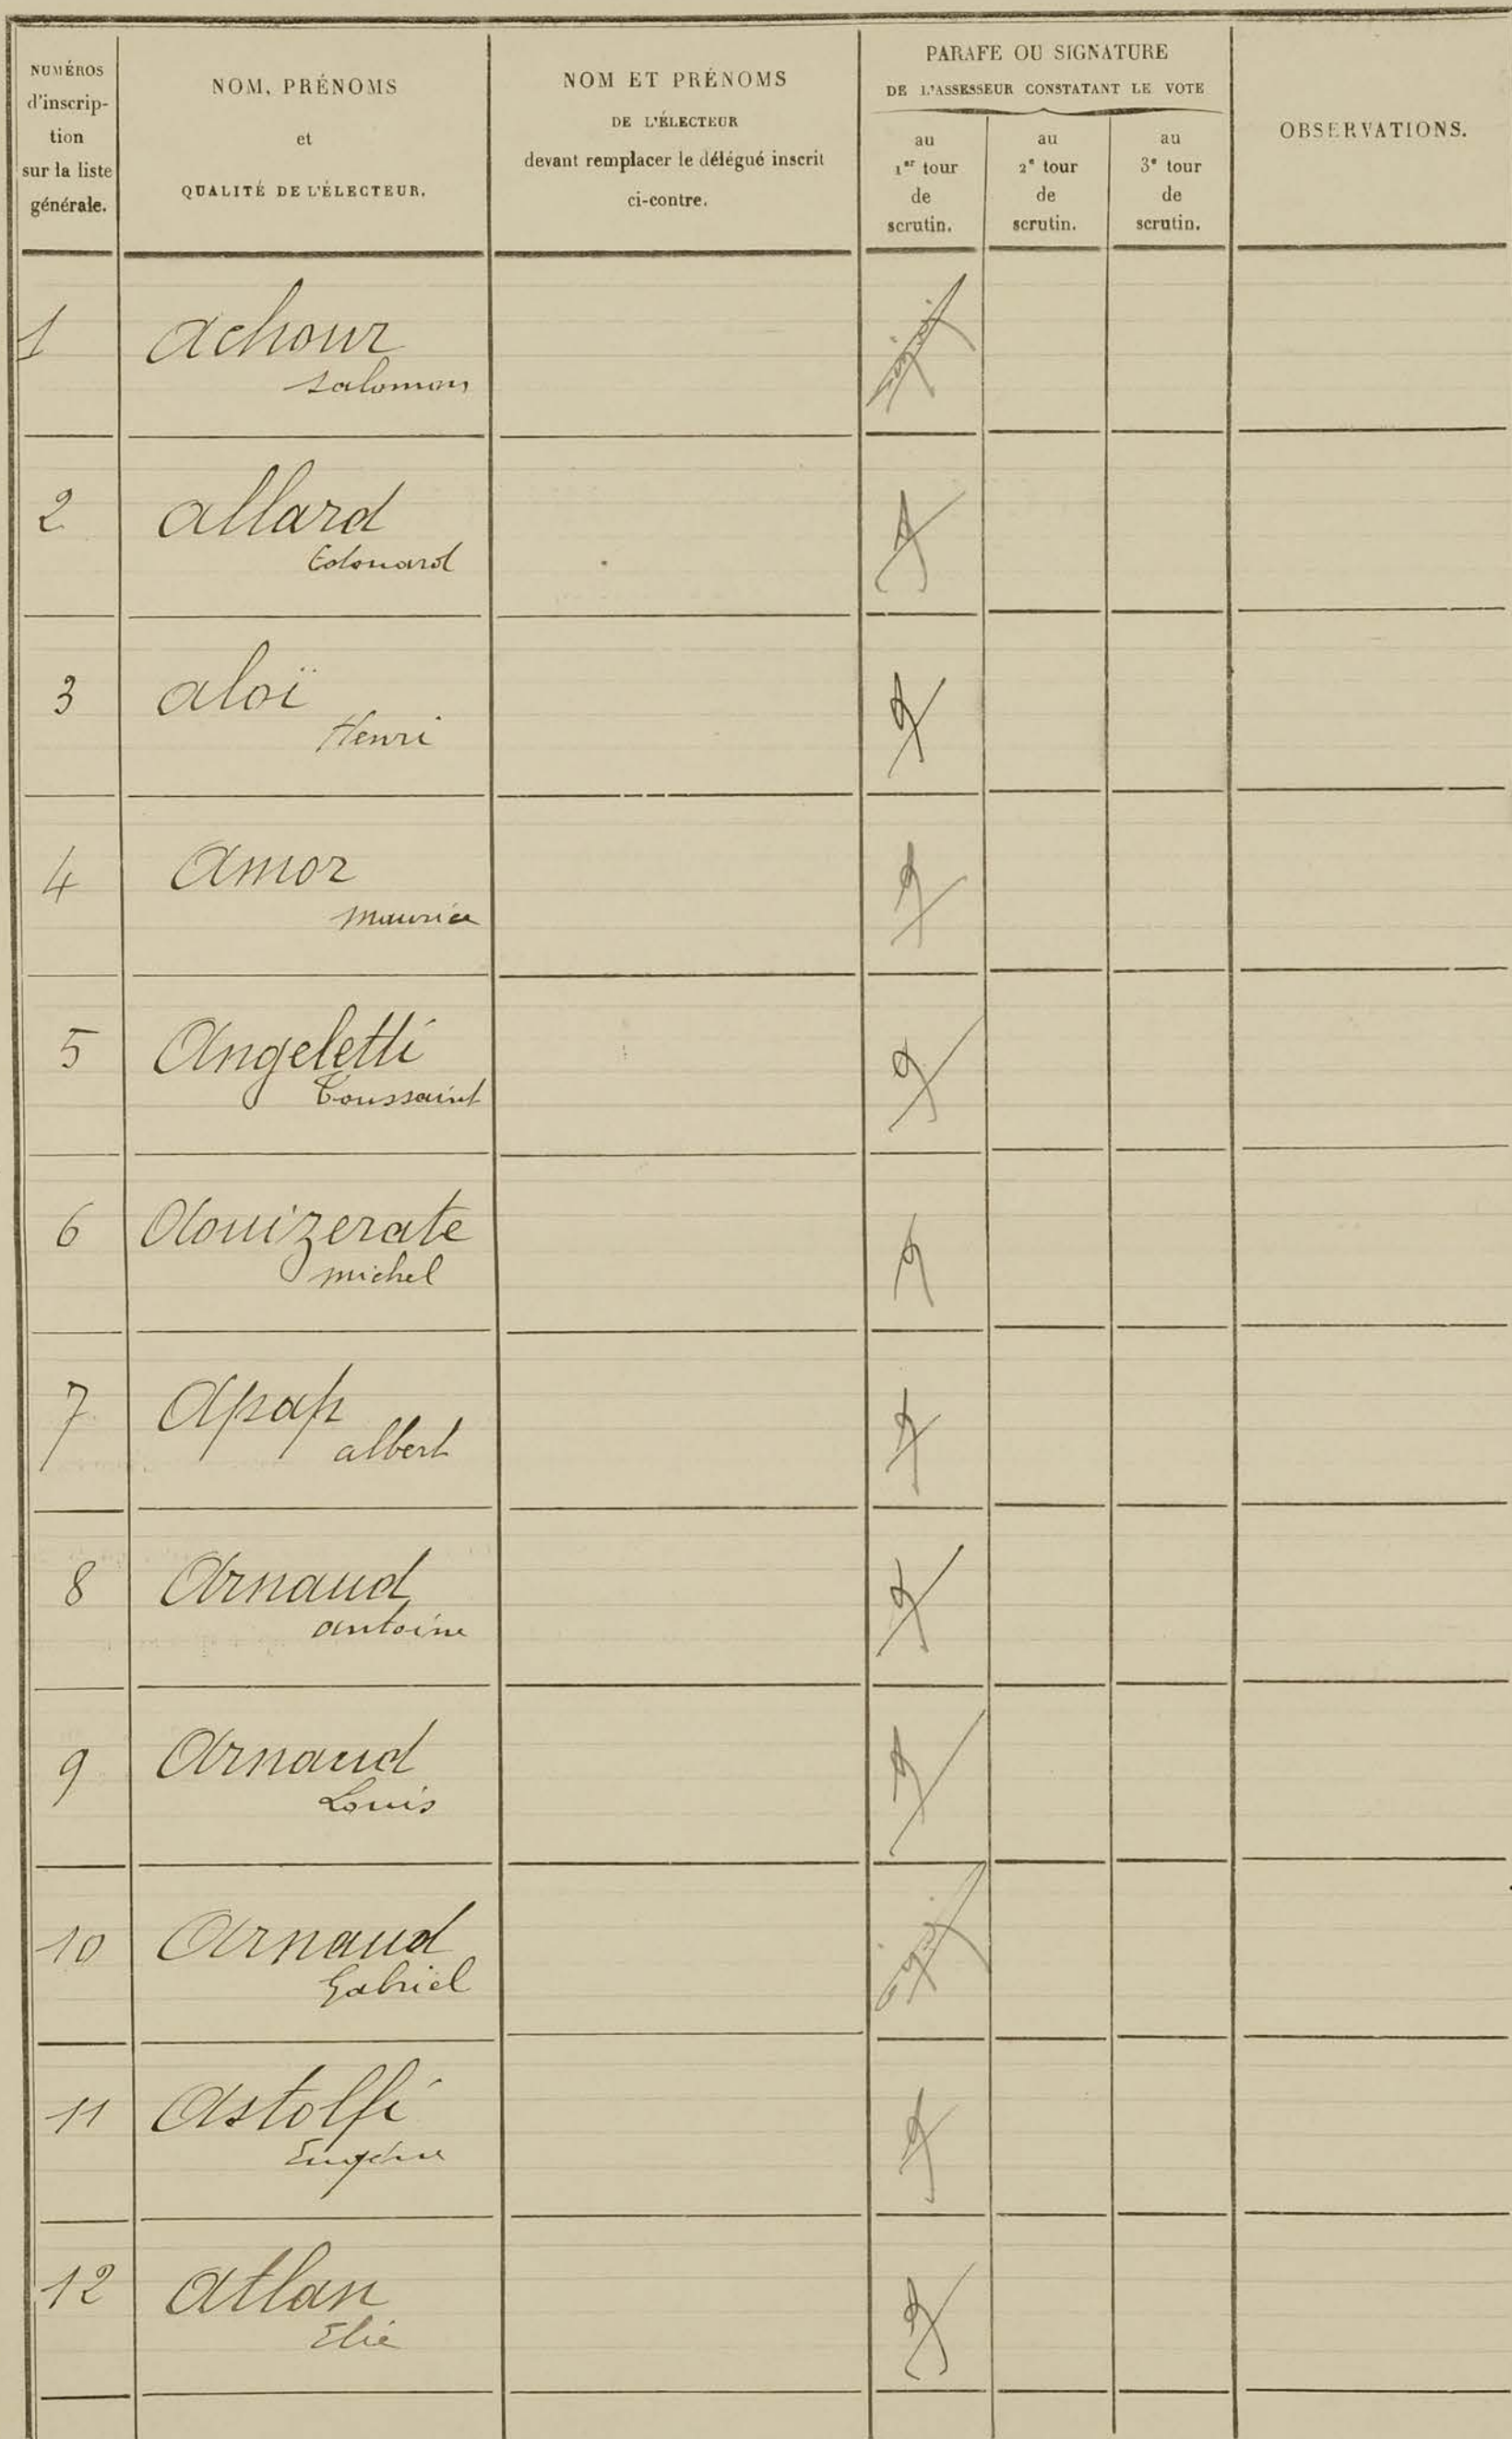 NUMÉROS
d'inscrip-
tion
sur la liste
générale.
NOM, PRÉNOMS
et
QUALITÉ DE L'ÉLECTEUR.
NOM ET PRÉNOMS
DE L'ÉLECTEUR
devant remplacer le délégué inscrit
ci-contre.
PARAFE OU SIGNATURE
DE L'ASSESSEUR CONSTATANT LE VOTE
au
1er tour
de
scrutin.
au
2e tour
de
scrutin.
au
3e tour
de
scrutin.
OBSERVATIONS.
1 Achour
Salomon
2 Allard
Edouard
3 Aloï
Henri
4 Amor
Maurice
5 Angeletti
Toussaint
6 Aouizerate
Michel
7 Apap
Albert
8 Arnaud
Antoine
9 Arnaud
Louis
10 Arnaud
Gabriel
11 Astolfi
Eugène
12 Atlan
Elie